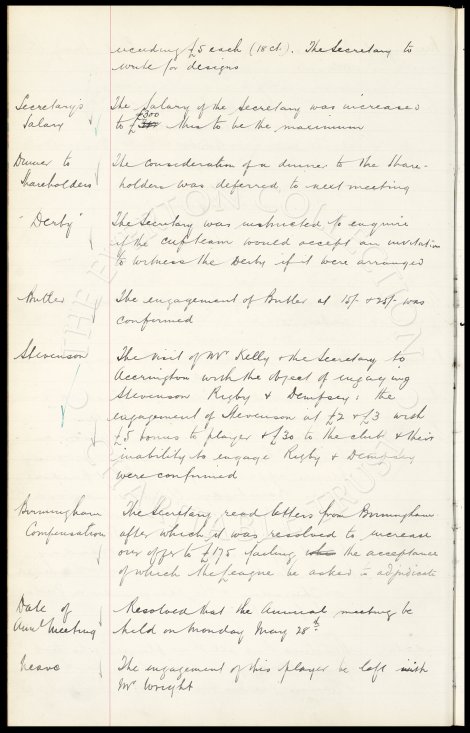 exceeding £5 each (18 ct). The Secretary to
write for designs
Secretary's Salary
The Salary of the Secretary was increased
£300
to £ this to be the maximum
Dinner to Shareholders
The consideration of a dinner to the Share-
holders was deferred to next meeting
"Derby"
The Secretary was instructed to enquire
if the cup team would accept an invitation
to witness the Derby if it were arranged
Butler
The engagement of Butler at 15/- & 25/- was
confirmed
Stevenson
The visit of Mr Kelly & the Secretary to
Accrington with the object of engaging
Stevenson Rigby & Dempsey: the
engagement of Stevenson at £2 & £3 with
£5 bonus to player & £30 to the club, & their
inability to engage Rigby & Dempsey
were confirmed
Birmingham Compensation
The Secretary read letters from Birmingham
after which it was resolved to increase
our offer to £175 failing the acceptance
of which the League be asked to adjudicate
Date of Annl Meeting
Resolved that the Annual meeting be
held on Monday May 28th
Neave
The engagement of this player be left with
Mr Wright